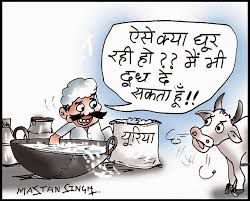 ऐसे क्या घूर
रही हो?? मैं भी
दूध दे
सकता हूँ!!
यूरिया
MASTAN SINGH